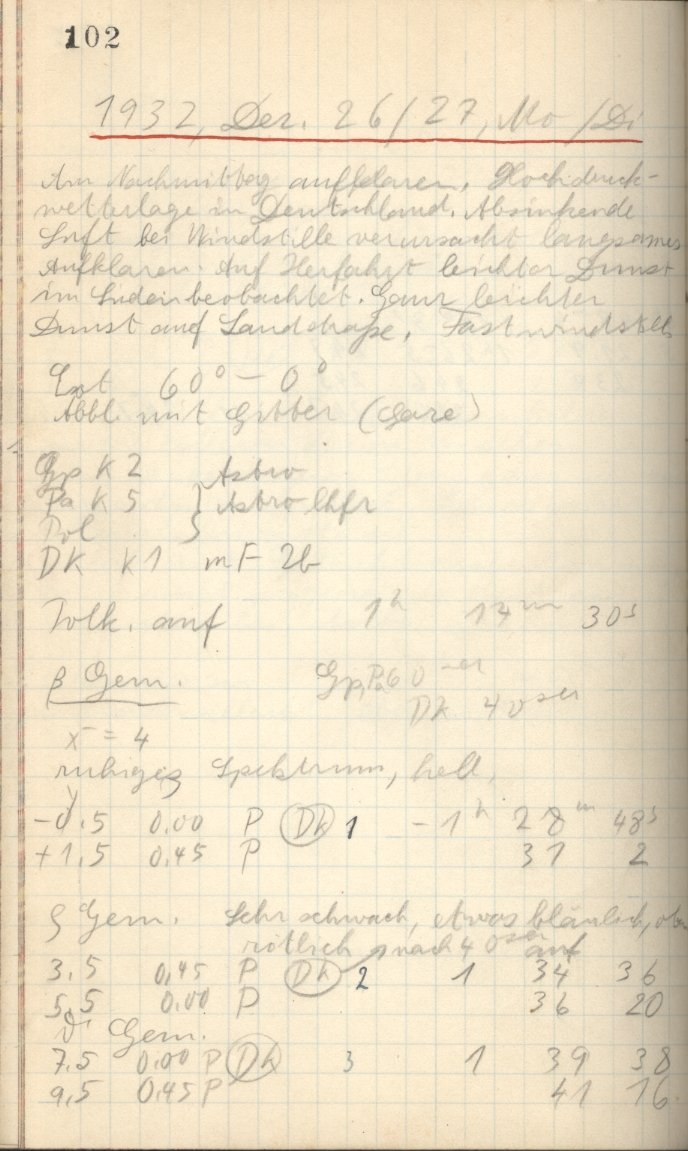 102
1932, Dez. 26/27, Mo/Di
Am Nachmittag aufklaren. Hochdruck-
wetterlage in Deutschland. Absinkende
Luft bei Windstille verursacht langsames
Aufklaren. Auf Herfahrt leichter Dunst
im Süden beobachtet. Ganz leichter
Dunst auf Landstraße. Fast windstill
60° – 0°
Abbl. mit Gitter (Gaze)
Gp K 2 Astro
Pa K 5 } Astro lhfr
Pol
DK K 1 mF 2b
Tolk. auf 1h 17m 30s
β Gem. Gp, Pa 60
DK 40
x = 4
ruhiges Spektrum, hell,
-0.5 0.00 P (Dk) 1 -1h 28m 48s
+1,5 0.45 P 31 2
ζ Gem. Sehr schwach, etwas bläulich,
rötlich nach 40 auf
3,5 0,45 P (Dk) 2 1 34 36
5,5 0.00 P 36 20
Gem.
7,5 0.00 P (Dk) 3 1 39 38
9,5 0.45 P 41 16